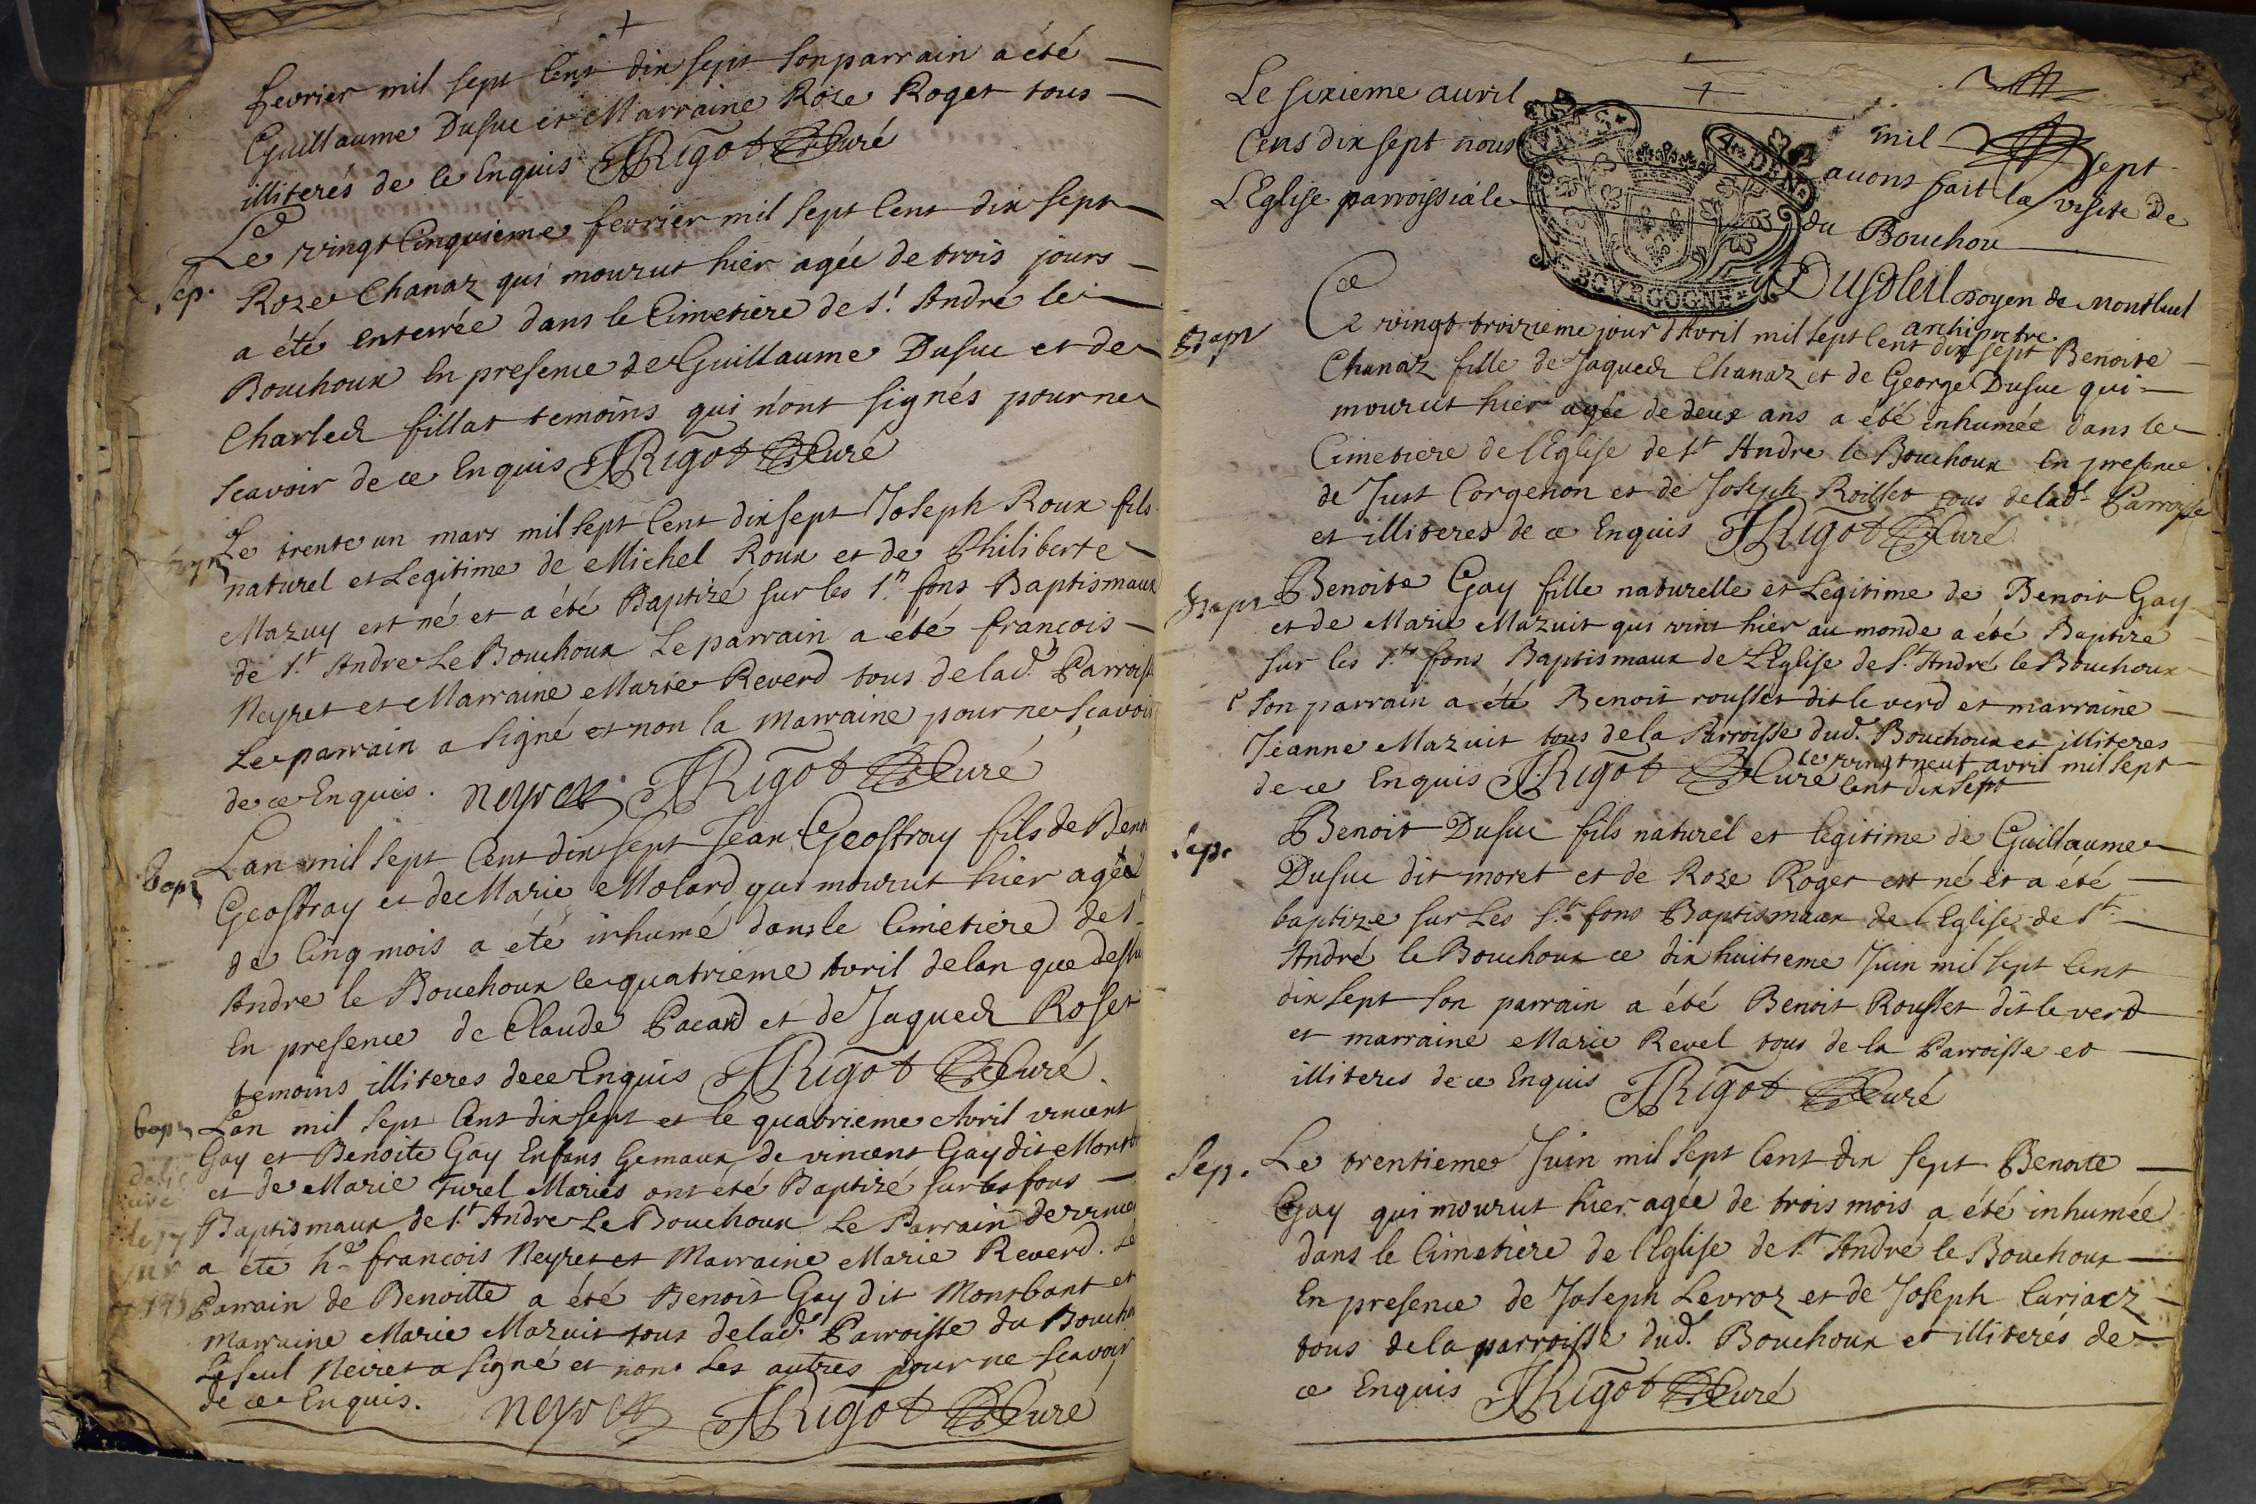 fevrier mil sept Cent dix sept son parrain a été
Guillaume Dusuc et Marraine Roze Roget tous
illiterés de ce Enquis JRigot Curé
Le vingt Cinquieme fevrier mil sept Cent dix sept
Sep.
Roze Chanaz qui mourut hier agée de trois jours
a été enterrée dans le Cimetiére de St André le
Bouchoux En presence de Guillaume Dusuc et de
Charles fillat temoins qui n'ont signés pour ne
scavoir de ce Enquis JRigot Curé
Le trente un mars mil sept Cent dix sept Joseph Roux fils
naturel et Legitime de Michel Roux et de Philiberte
Mazuy est né et a été Baptizé sur les Sts fons Baptismaux
de St Andre Le Bouchoux Le parrain a été françois
Neyret et Marraine Marie Reverd tous de lad. Parroisse
Le parrain a signé et non la marraine pour ne sçavoir
de ce Enquis. neyret JRigot Curé
bap
Lan mil sept Cent dix sept Jean Geoffray fils de Benoit
Geoffray et de Marie Molard qui mourut hier agée
de Cinq mois a été inhumé dans le Cimetiére de St
Andre le Bouchoux le quatriéme Avril de lan que dessus
En presence de Claude Pacard et de Jaques Roset
temoins illiteres de ce Enquis JRigot Curé
bap
Lan mil sept Cent dix sept et le quatrieme Avril vincent
Gay et Benoite Gay Enfans Gemaux de vincent Gay dit Mont
et de Marie Turel Mariés ont été Baptizé sur les fons
Baptismaux de St Andre Le Bouchoux Le Parrain de vincent
a été he françois Neyret et Marraine Marie Reverd. Le
Parrain de Benoitte a été Benoit Gay dit Montbant et
marraine Marie Mazuit tous de lad. Parroisse du Bouchoux
Le seul Neiret a signé et non Les autres pour ne scavoir
de ce Enquis. neyret JRigot Curé
Le sixieme avril mil sept
Cens dix sept nous avons fait la visite de
L'Eglise parroissiale du Bouchou
BOURGOGNE
Dusoleil doyen de Montluel
archipretre
Bapt
Ce vingt troizieme jour d'Avril mil sept Cent dix sept Benoite
Chanaz fille de Jaques Chanaz et de George Dusuc qui
mourut hier agée de deux ans a été inhumée dans le
Cimetiere de l'Eglise de St Andre le Bouchoux En presence
de Just Corgenon et de Joseph Roillet tous de lad. Parroisse
et illiteres de ce Enquis JRigot Curé
Bapt
Benoite Gay fille naturelle et Legitime de Benoit Gay
et de Marie Mazuit qui vint hier au monde a été Baptize
sur les Sts fons Baptismaux de L'Eglise de St André le Bouchoux
son parrain a été Benoit rousset dit le verd et marraine
Jeanne Mazuit tous de la Parroisse dud. Bouchoux et illiteres
de ce Enquis JRigot Curé le vingt neuf avril mil sept
cent dix sept
Sep.
Benoit Dusuc fils naturel et legitime de Guillaume
Dusuc dit moret et de Roze Roget est né et a été
baptize sur Les Sts fons Baptismaux de l'Eglise de St
André le Bouchoux ce dix huitieme Juin mil sept Cent
dix sept son parrain a été Benoit Rousset dit le verd
et marraine Marie Revel tous de la Parroisse et
illiteres de ce Enquis JRigot Curé
Sep.
Le trentieme Juin mil sept Cent dix sept Benoite
Gay qui mourut hier agée de trois mois a été inhumée
dans le Cimetiére de l'Eglise de St André le Bouchoux
En presence de Joseph Levroz et de Joseph Curiarz
tous de la parroisse dud. Bouchoux et illiterés de
ce Enquis JRigot Curé